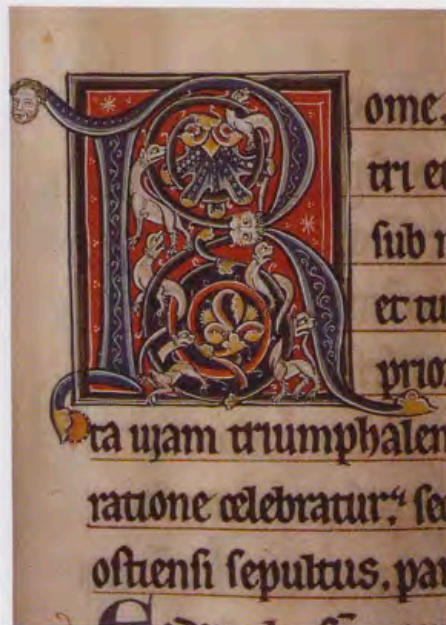 Rome,
tri et
sub n
et tu
prior
ta uiam triumphalem
ratione celebratur; se
ostiensi sepultus, par